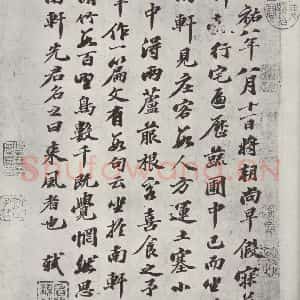 祐八年八月十一日將朝尚早假寐
行宅遍歷蔬圃中已而坐
南軒見庄客數人方運土塞小
中得兩蘆菔根客喜食之予
筆作一篇文有數句云坐於南軒
脩竹數百野鳥數千既覺惘然思
南軒先君名之曰來風者也 軾
Shufawang.CN